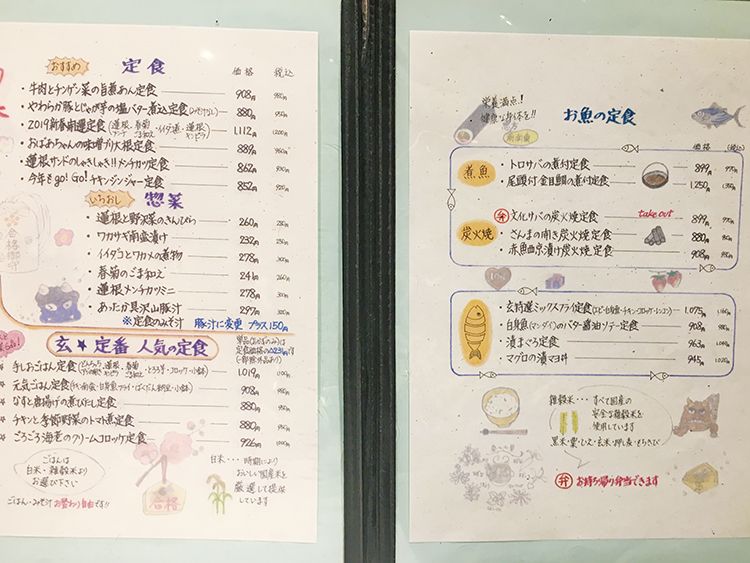 おすすめ 定食 価格 税込
・牛肉とチンゲン菜の旨煮あん定食 908円 980円
・やわらか豚とじゃが芋の塩バター煮込定食 880円 950円
・2019新春開運定食 1,112円 1,200円
・おばあちゃんの味噌ダレ大根定食 889円 960円
・蓮根サンドのしゃきしゃき!!メンチカツ定食 862円
・今年もgo!Go!チキンジンジャー定食 852円 920円
いちおし 惣菜
・蓮根と野沢菜のきんぴら 260円 280円
・ワカサギ南蛮漬け 232円 250円
・イイダコとワカメの煮物 278円 300円
・春菊のごま和え 241円 260円
・蓮根メンチカツミニ 278円 300円
・あったか具沢山豚汁 297円
※定食のみそ汁 豚汁に変更 プラス150円
玄★定番 人気の定食
単品(おかずのみ)は
定食価格の231円です
(一部除外あり)
手しおごはん定食 1,019円 1,100円
元気ごはん定食 908円 980円
なすと唐揚げの煮びたし定食 880円 950円
チキンと季節野菜のトマト煮定食 880円 950円
ごろごろ海老のクリームコロッケ定食 926円
ごはんは
白米・雑穀米より
お選び下さい
ごはん・みそ汁 お替わり自由です!!
合格
白米・・・時期により
おいしい国産米を
厳選して提供
しています
合格御守
栄養満点!
健康な身体を!!
お魚の定食
価格 (税込)
煮魚
・トロサバの煮付定食 899円 970円
・尾頭付 金目鯛の煮付定食 1,250円
炭火焼
弁 文化サバの炭火焼定食 take out 899円 970円
・さんまの開き炭火焼定食 880円
・赤魚西京漬け炭火焼定食 908円
・玄特選ミックスフライ定食 1,075円
・白身魚(マンダイ)のバター醤油ソテー定食 908円
・漬まぐろ定食 963円
・マグロの漬マヨ丼 945円
雑穀米・・・すべて国産の
安全な雑穀米を
使用しています
黒米・粟・ひえ・玄米・押し麦・もちきび
弁 お持ち帰り弁当できます